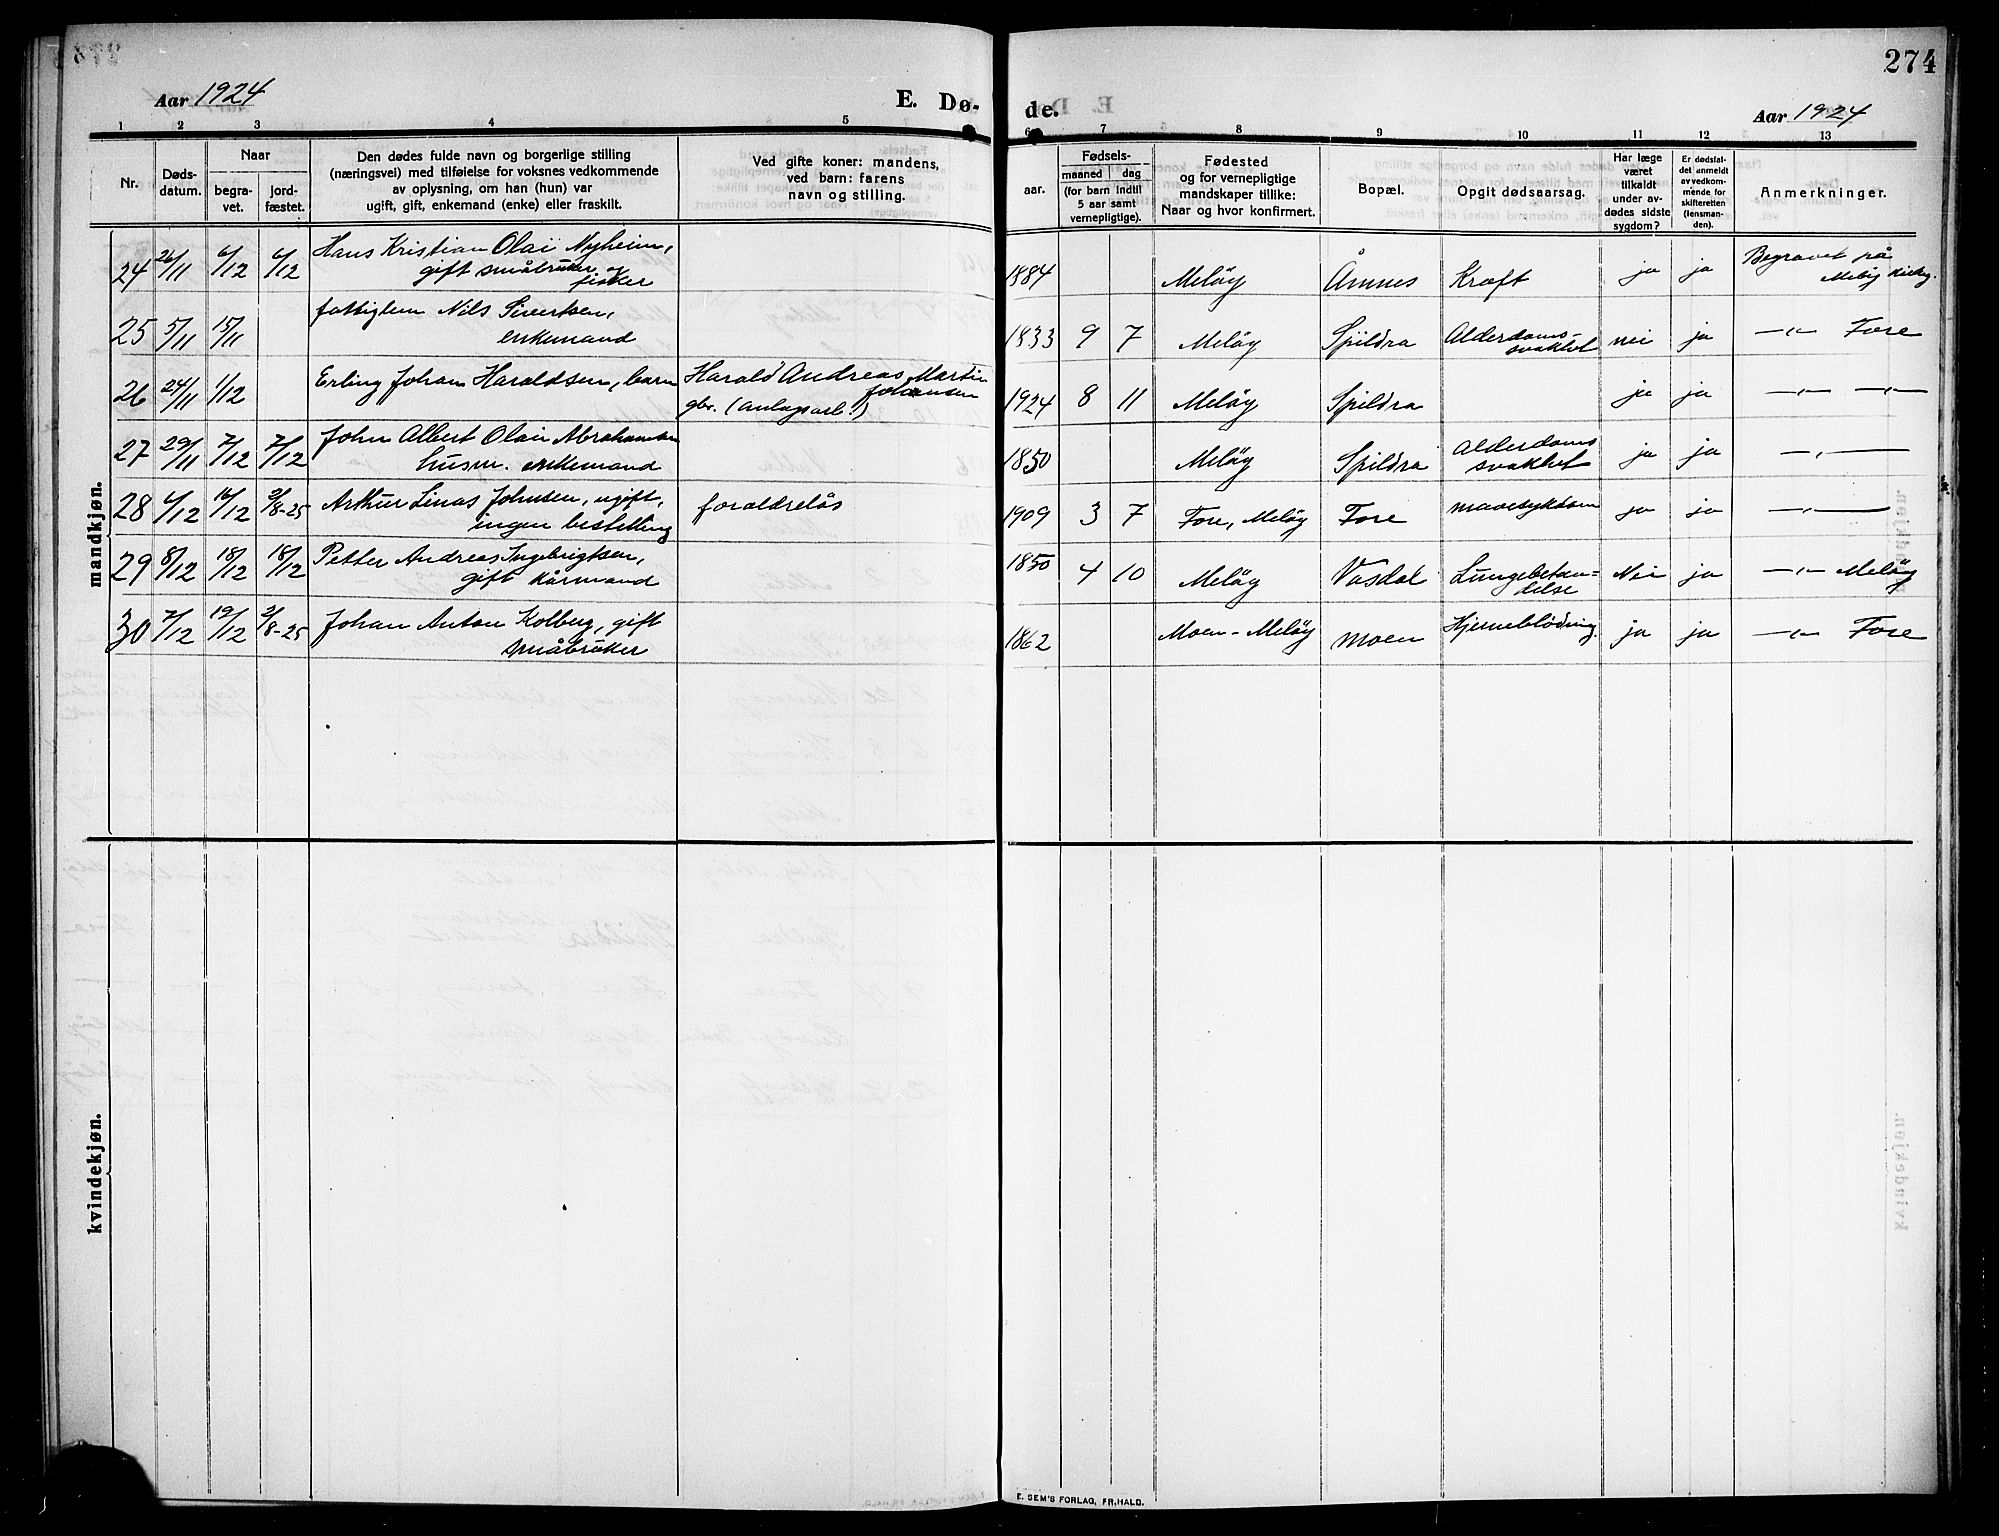 274
Aar 1924
E. Dø-
de.
Aar 1924
1 2 3 4 5 6 7 8 9 10 11 12 13
Nr.
Døds-
datum.
Naar
begra-
vet.
jord-
fæstet.
Den dødes fulde navn og borgerlige stilling
(næringsvei) med tilføielse for voksnes vedkommende
av oplysning, om han (hun) var
ugift, gift, enkemand (enke) eller fraskilt.
Ved gifte koner: mandens,
ved barn: farens
navn og stilling.
Fødsels-
aar.
maaned dag
(for barn indtil
5 aar samt
vernepligtige).
Fødested
og for vernepligtige
mandskaper tillike:
Naar og hvor konfirmert.
Bopæl.
Opgit dødsaarsag.
Har læge
været
tilkaldt
under av-
dødes sidste
sygdom?
Er dødsfal-
det anmeldt
av vedkom-
mende for
skifteretten
(lensman-
den).
Anmerkninger.
mandkjøn.
24 26/11 6/12 6/12 Hans Kristian Olai Nyheim,
gift småbruker og
fisker
1884 Meløy Åmnes Kræft ja ja Begravet på
Meløy kirkg.
25 5/11 15/11 fattiglem Nils Sivertsen,
enkemand
1833 9 7 Meløy Spildra Alderdoms-
svakhet nei ja —"— Fore
26 24/11 1/12 Erling Johan Haraldsen, barn Harald Andreas Martin
Johansen
gbr. (anlagsarb.!)
1924 8 11 Meløy Spildra ja ja —"— —"—
27 29/11 7/12 7/12 John Albert Olai Abrahamsen
husm. enkemand
1850 Meløy Spildra Alderdoms
svakhet ja ja —"—
28 4/12 16/12 2/8-25 Arthur Linas Johnsen, ugift,
ingen bestilling foraldreløs
1909 3 7 Fore, Meløy Fore mavesykdom ja ja —"—
29 8/12 18/12 18/12 Petter Andreas Ingebrigtsen,
gift kårmand
1850 4 10 Meløy Vasdal Lungebetæn-
delse Nei ja —"— Meløy
30 7/12 19/12 2/8-25 Johan Anton Kolberg, gift
småbruker
1862 Moen-Meløy Moen Hjerneblødning ja ja —"— Fore
kvindekjøn.
E. SEM'S FORLAG, FR.HALD.